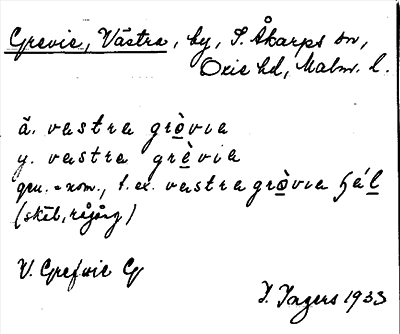 Grevie, Västra, by, S. Åkarps sn,
Oxie hd, Malm. l.
ä. vastra grò̲via
y. vastra grè̲via
gen. = nom., t. ex. vastra grò̲via
V. Grefvie
I. Ingers 1933